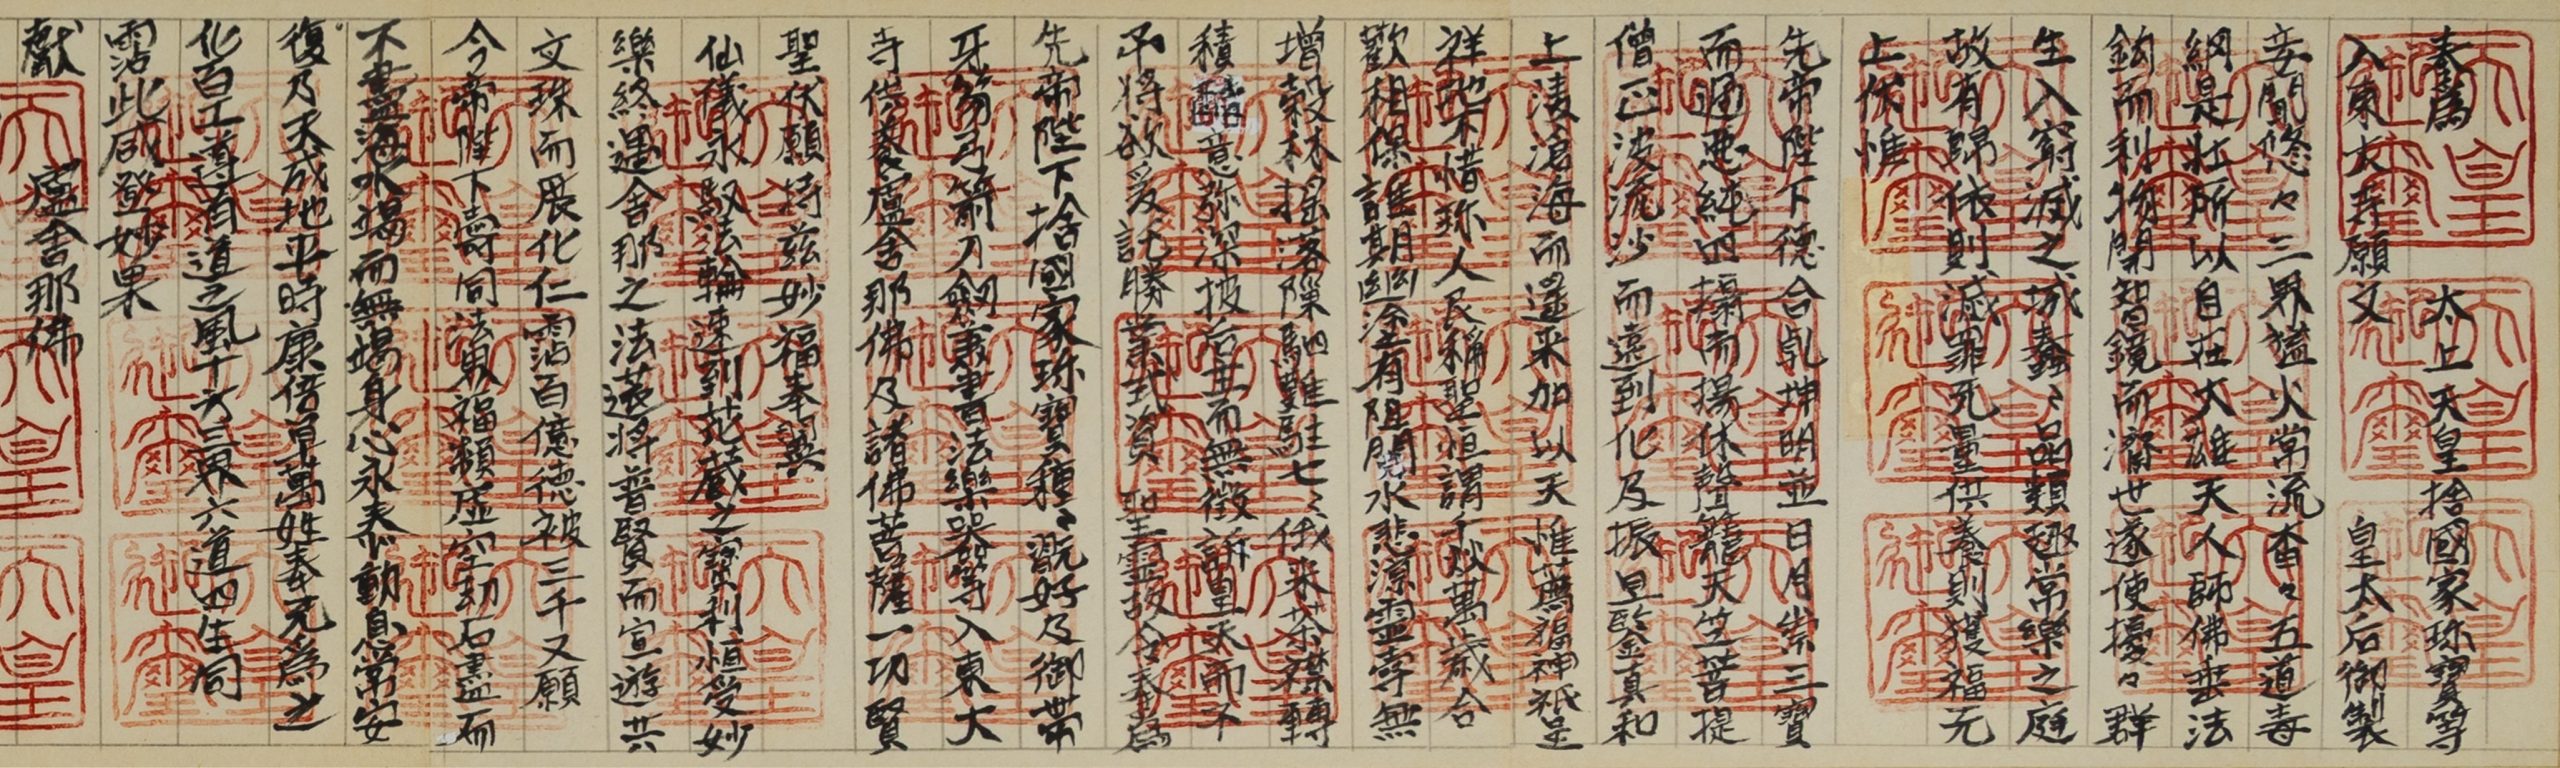 奉爲　太上天皇捨國家珎寳等
入東大寺願文　皇太后御製
妾聞悠々三界猛火常流杳々五道毒
網是壮所以自在大雄天人師佛垂法
鈎而利物開智鏡而濟世遂使擾々群
生入寂滅之域蠢々品類趣常樂之庭
故有歸依則滅罪无量供養則獲福无
上伏惟
先帝陛下德合乹坤明並日月崇三寳
而遏惡統四攝而揚休聲籠天竺菩提
僧正渉流沙而遠到化及振旦鑒真和
上凌滄海而遥来加以天惟薦福神祇呈
祥地不惜珎人民稱聖恒謂千秋萬歳合
歡相保誰期幽塗有阻閲水悲凉靈壽無
增穀林摇落隟駟難駐七々俄来茶襟轉
積酷意弥深披后土而無徴訴皇天而不
弔將欲爰託勝業式資聖靈故今奉爲
先帝陛下捨國家珎寶種々翫好及御帶
牙笏弓箭刀劔兼書法樂器等入東大
寺供養盧舎那佛及諸佛菩薩一切賢
聖伏願持茲妙福奉翼
仙儀永馭法輪速到花蔵之寳刹恒受妙
樂終遇舎那之法莚將普賢而宣遊共
文殊而展化仁霑百億德被三千又願
今帝陛下壽同法界福類虚空劫石盡而
不盡海水竭而無竭身心永泰動息常安
復乃天成地平時康俗阜萬姓奉无爲之
化百工遵有道之風十方三界六道四生同
霑此咸登妙果
獻　盧舎那佛